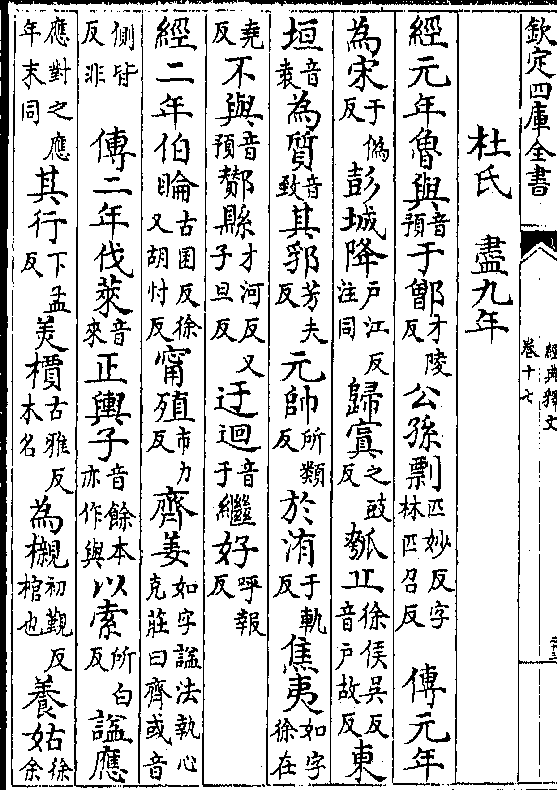 欽定四庫全書
經典釋文
卷十七
杜氏　盡九年
經元年魯與音預于鄫才陵反公孫剽匹妙反字林匹召反　傳元年
為宋于偽反彭城降户江反注同歸寘之豉反瓠丘徐侯吳反音户故反東
垣音袁為質音致其郛芳夫反元帥所類反於洧于軌反焦夷如字徐在
堯反不與音預酇縣才河反又子旦反迂迴音于繼好呼報反
經二年伯睔古囷反徐又胡忖反甯殖市力反齊姜如字諡法執心克莊曰齊或音
側皆反非　傳二年伐萊音來正輿子音餘本亦作與以索所白反諡應
應對之應年末同其行下孟反美檟古雅反木名為櫬初覲反棺也養姑徐余